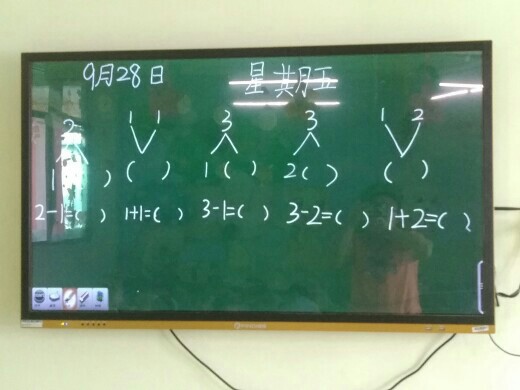 9月28日 星期五
2 1 1 3 3 1 2
1( ) ( ) 1( ) 2( ) ( )
2-1=( ) 1+1=( ) 3-1=( ) 3-2=( ) 1+2=( )